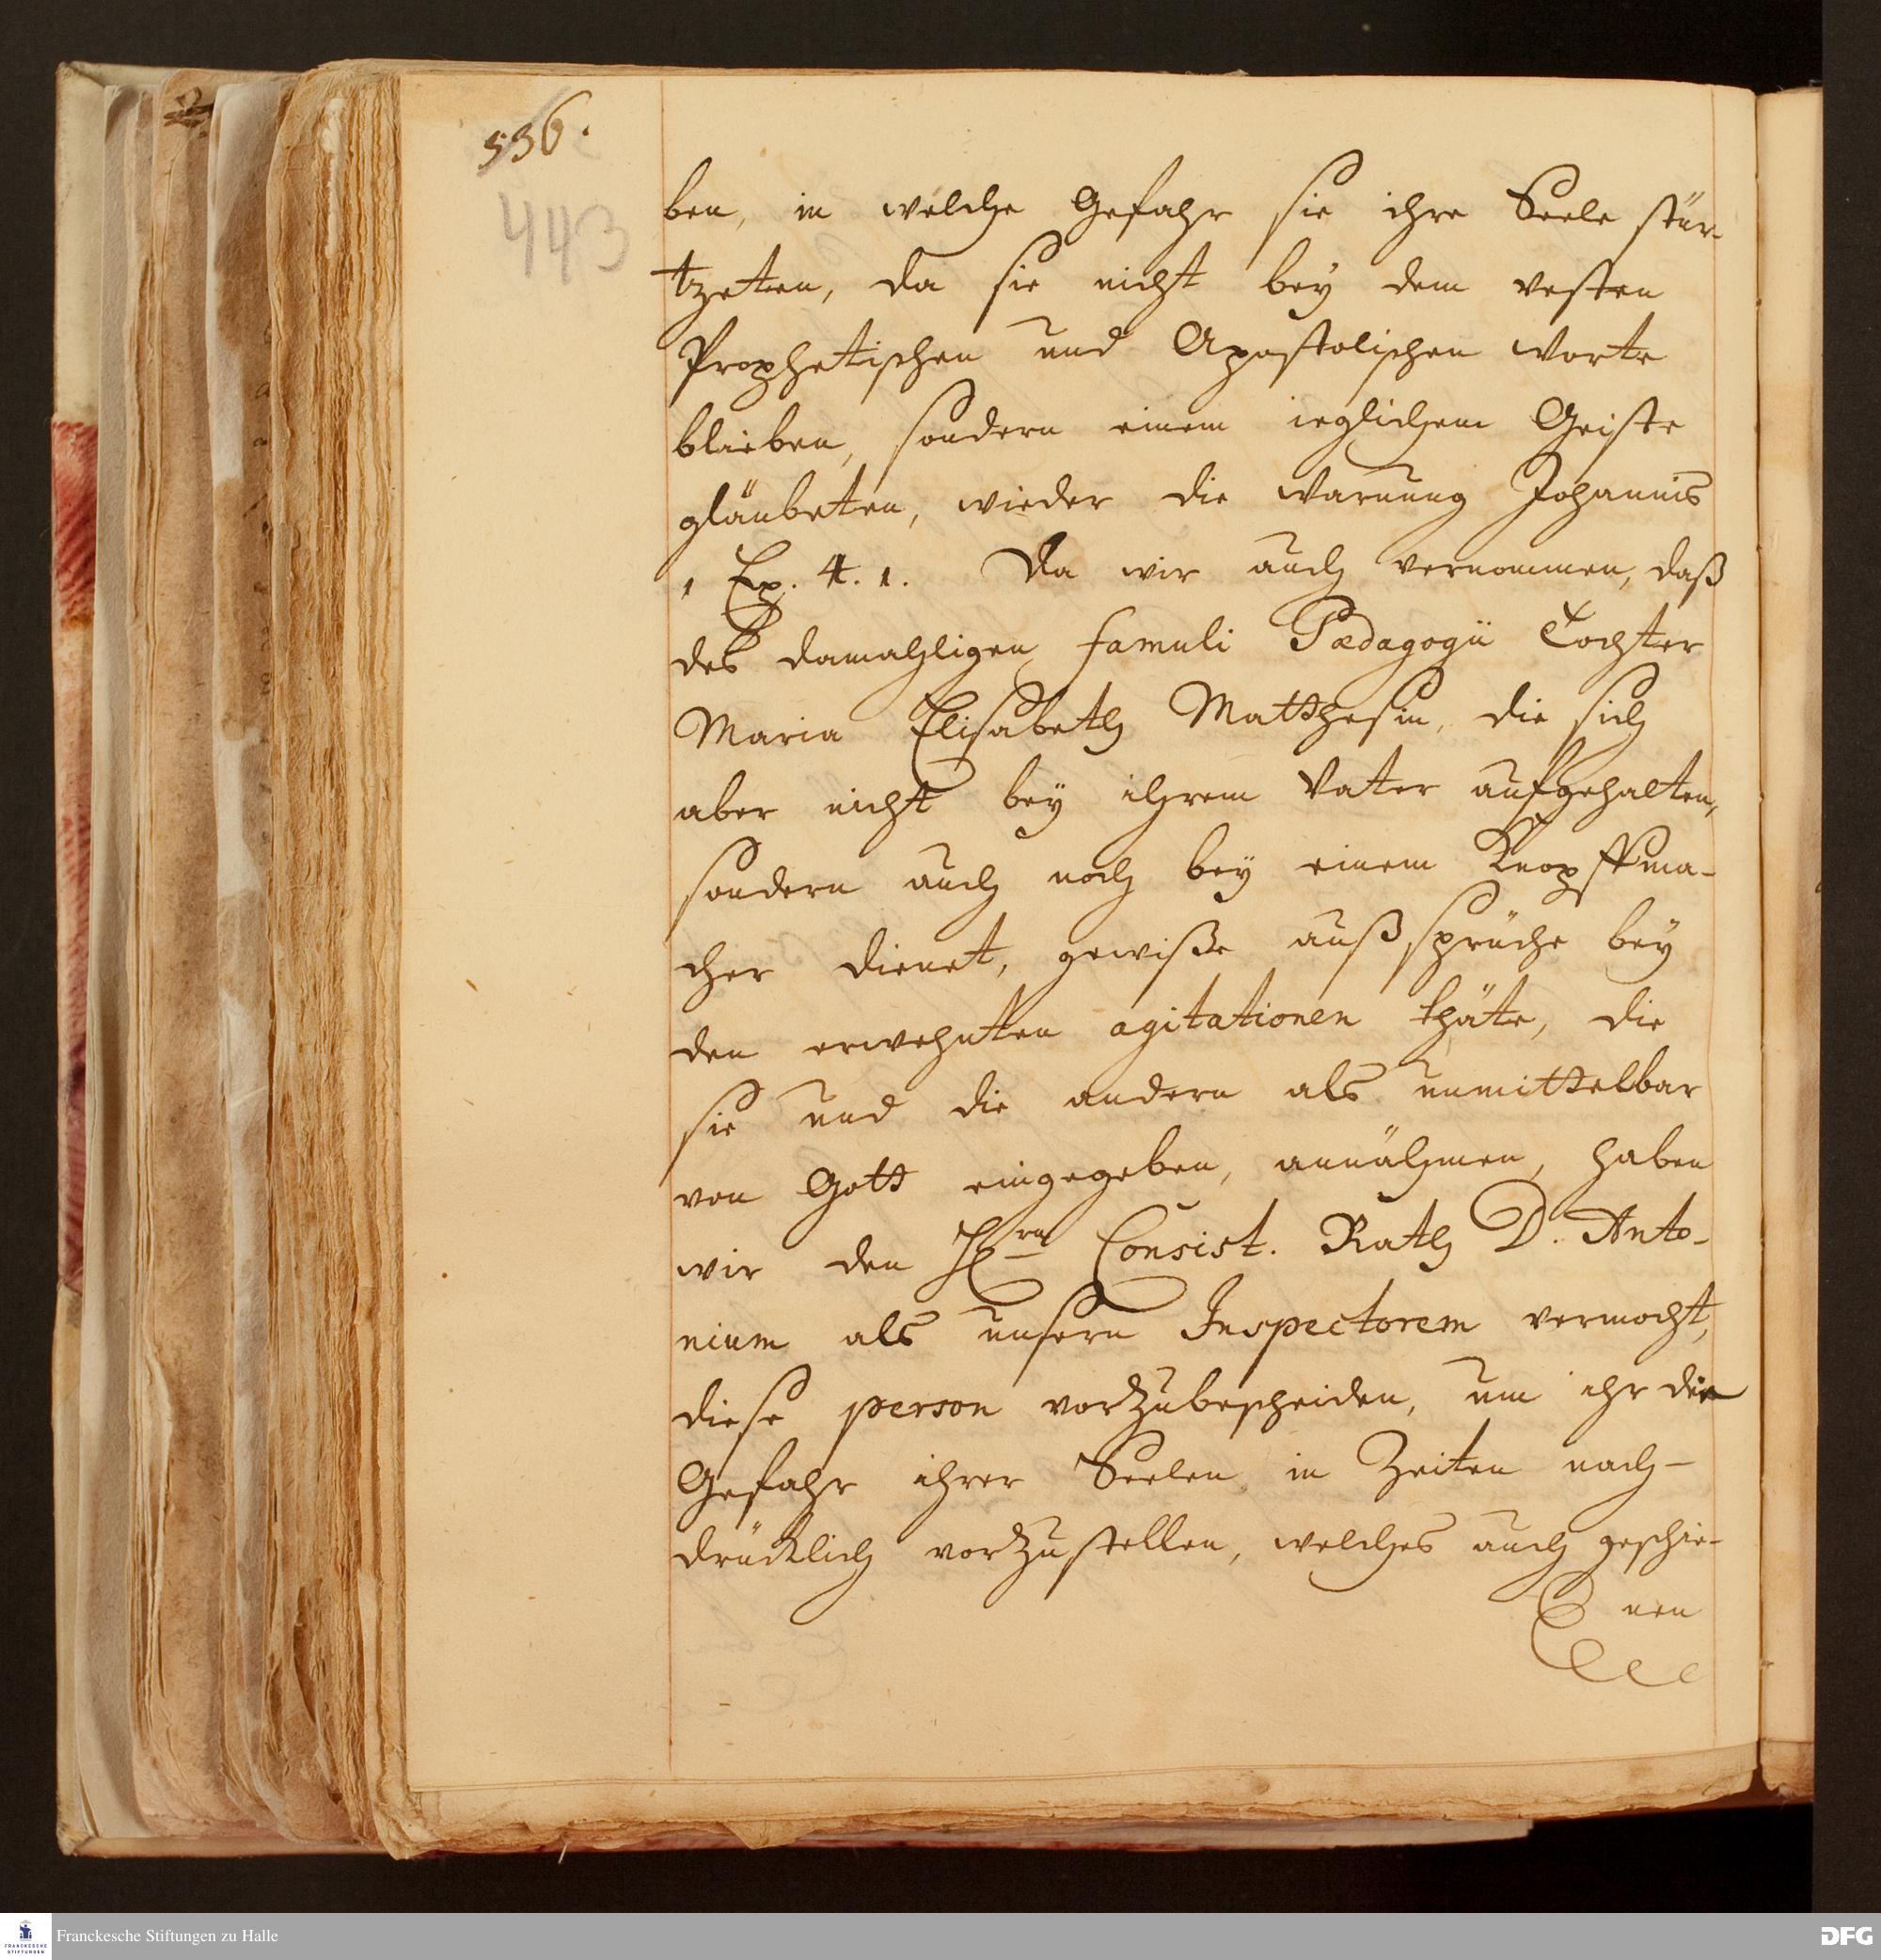 536.
443
ben, in welche Gefahr sie ihre Seele stür-
tzeten, da sie nicht bey dem vesten
Prophetischen und Apostolischen Worte
blieben, sondern einem ieglichem Geiste
gläubeten, wieder die Warnung Johannis
1 Ep. 4. 1. Da wir auch vernommen, daß
des damahligen famuli Pædagogii Tochter
Maria Elisabeth Matthesin, die sich
aber nicht bey ihrem Vater aufgehalten,
sondern auch noch bey einem Knopffma-
cher dienet, gewiße außsprüche bey
den erwehnten agitationen thäte, die
sie und die andern als unmittelbar
von Gott eingegeben, annähmen, haben
wir den Hrn Consist. Rath D. Anto-
nium als unsern Inspectorem vermocht,
diese person vorzubescheiden, um ihr die
Gefahr ihrer Seelen in Zeiten nach-
drücklich vorzustellen, welches auch geschie-
nen
Franckesche Stiftungen zu Halle
FRANCKESCHE
STIFTUNGEN
DFG